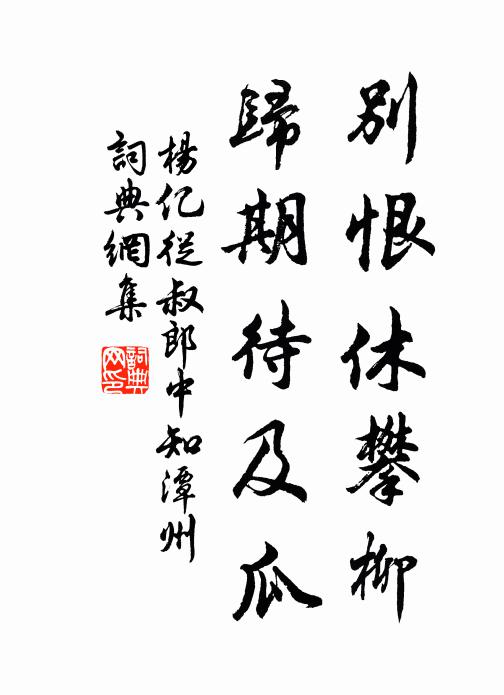 別恨休攀柳
歸期待及瓜
楊亿從叔郎中知潭州
詞典網集
詞典網印